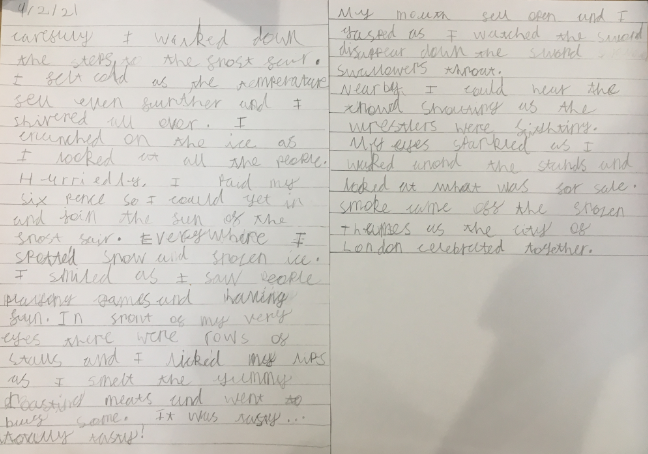 4/2/21
carefully I walked down
the steps to the frost fair.
I felt cold as the temperature
fell even further and I
shivered all over. I
crunched on the ice as
I looked at all the people.
Hurriedly, I paid my
six pence so I could get in
and join the fun of the
frost fair. Everywhere I
spotted snow and frozen ice.
I smiled as I saw people
playing games and having
fun. In front of my very
eyes there were rows of
stalls and I licked my lips
as I smelt the yummy
roasting meats and went to
buy some. It was tasty...
totally tasty!
My mouth fell open and I
gasped as I watched the sword
disappear down the sword
swallowers throat.
Nearby I could hear the
crowd shouting as the
wrestlers were fighting.
My eyes sparkled as I
walked around the stands and
looked at what was for sale.
smoke came off the frozen
Thames as the city of
London celebrated together.